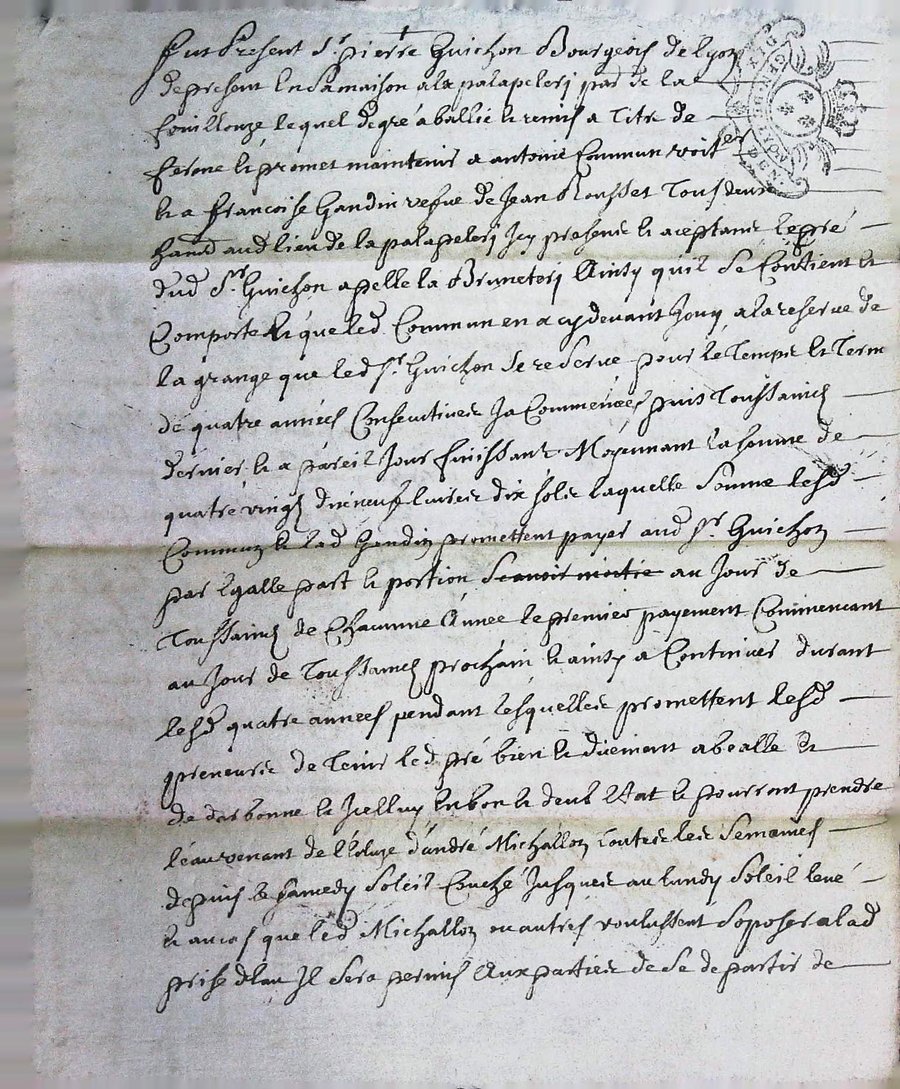 Fut Present Sr. pierre Guichon Bourgeois de lyon
de present En Sa maison a la palapelerj par de la
fouillouze lequel de gré a baillé et remis a Titre de
ferme et promet maintenir a antoine Commun voiter
et a francoise Gandin vefve de Jean Rousset Tous deux
hand aud lieu de la palapelerj Jcy presents et aceptants le pré
dud Sr. Guichon apellé la Bruneterj Ainsy qu'il Se Contient et
Comporte et que led Commun en a cy devant Jouy a la reserve de
la grange que led Sr. Guichon Se reserve pour le Temps et Term
de quatre années Consecutives Ja Commencées puis Toussainctz
dernier et a pareil Jour finissant Moyennant la somme de
quatre vingtz dix neuf livres dix solz laquelle Somme lesd
Commun et lad Gandin promettent payer aud Sr. Guichon
par Egalle part et portion Scavoir moitie au Jour de
Toussainctz de Chacunne Année le premier payement Commencant
au Jour de Toussainctz prochain et ainsy a Continuer durant
lesd quatre années pendant lesquelles promettent lesd
preneurs de Tenir led pré bien et duement abealle et
de darbonne et Jcelluy En bon et deub Estat et pourront prendre
l'eau venant de l'Ecluze d'andré Michallon Toutes les Semaines
depuis le Samedy Soleil Couché Jusques au lundy Soleil levé
et au cas que led Michallon ou autres voulussent S'oposer a lad
prise d'Eau Jl Sera permis Aux parties de Se departir de
GENER LYON
DIX DEN